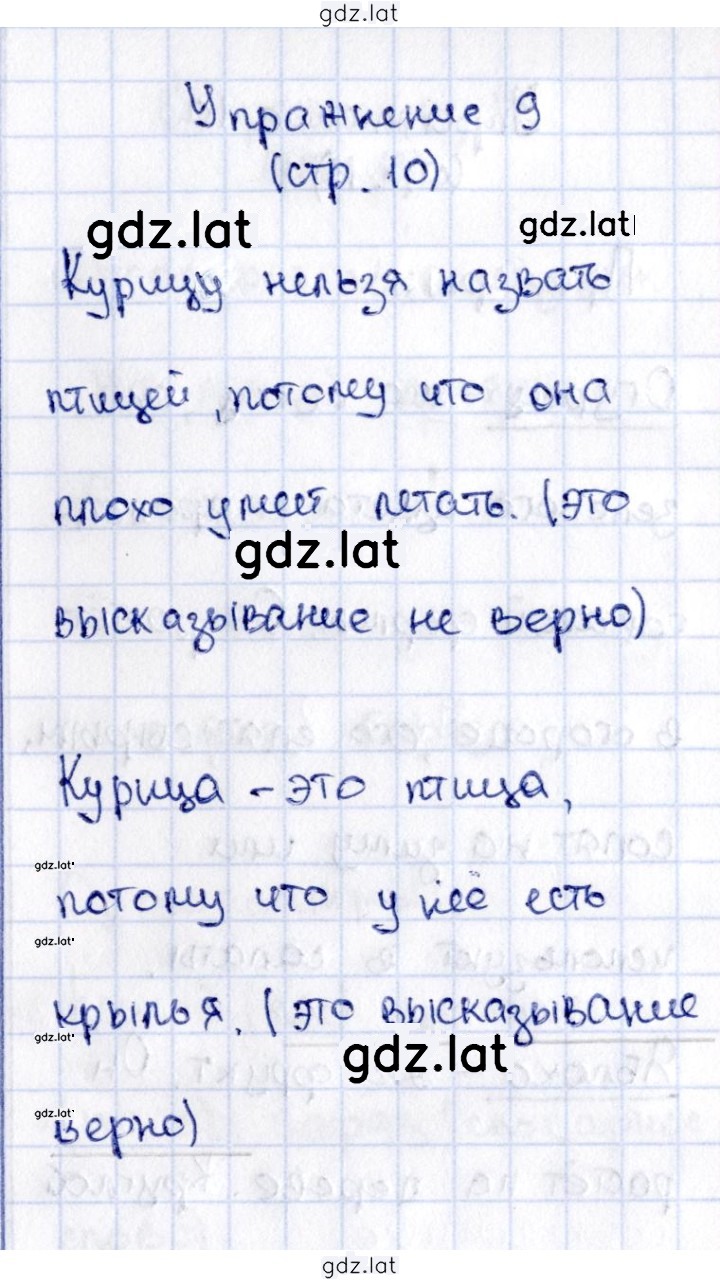 gdz.lat
Упражнение 9
(стр. 10)
gdz.lat gdz.lat
Курицу нельзя назвать
птицей, потому что она
плохо умеет летать. (это
gdz.lat
высказывание не верно)
Курица - это птица,
gdz.lat
потому что у неё есть
gdz.lat
крылья. (это высказывание
gdz.lat
gdz.lat
gdz.lat
верно)
gdz.lat